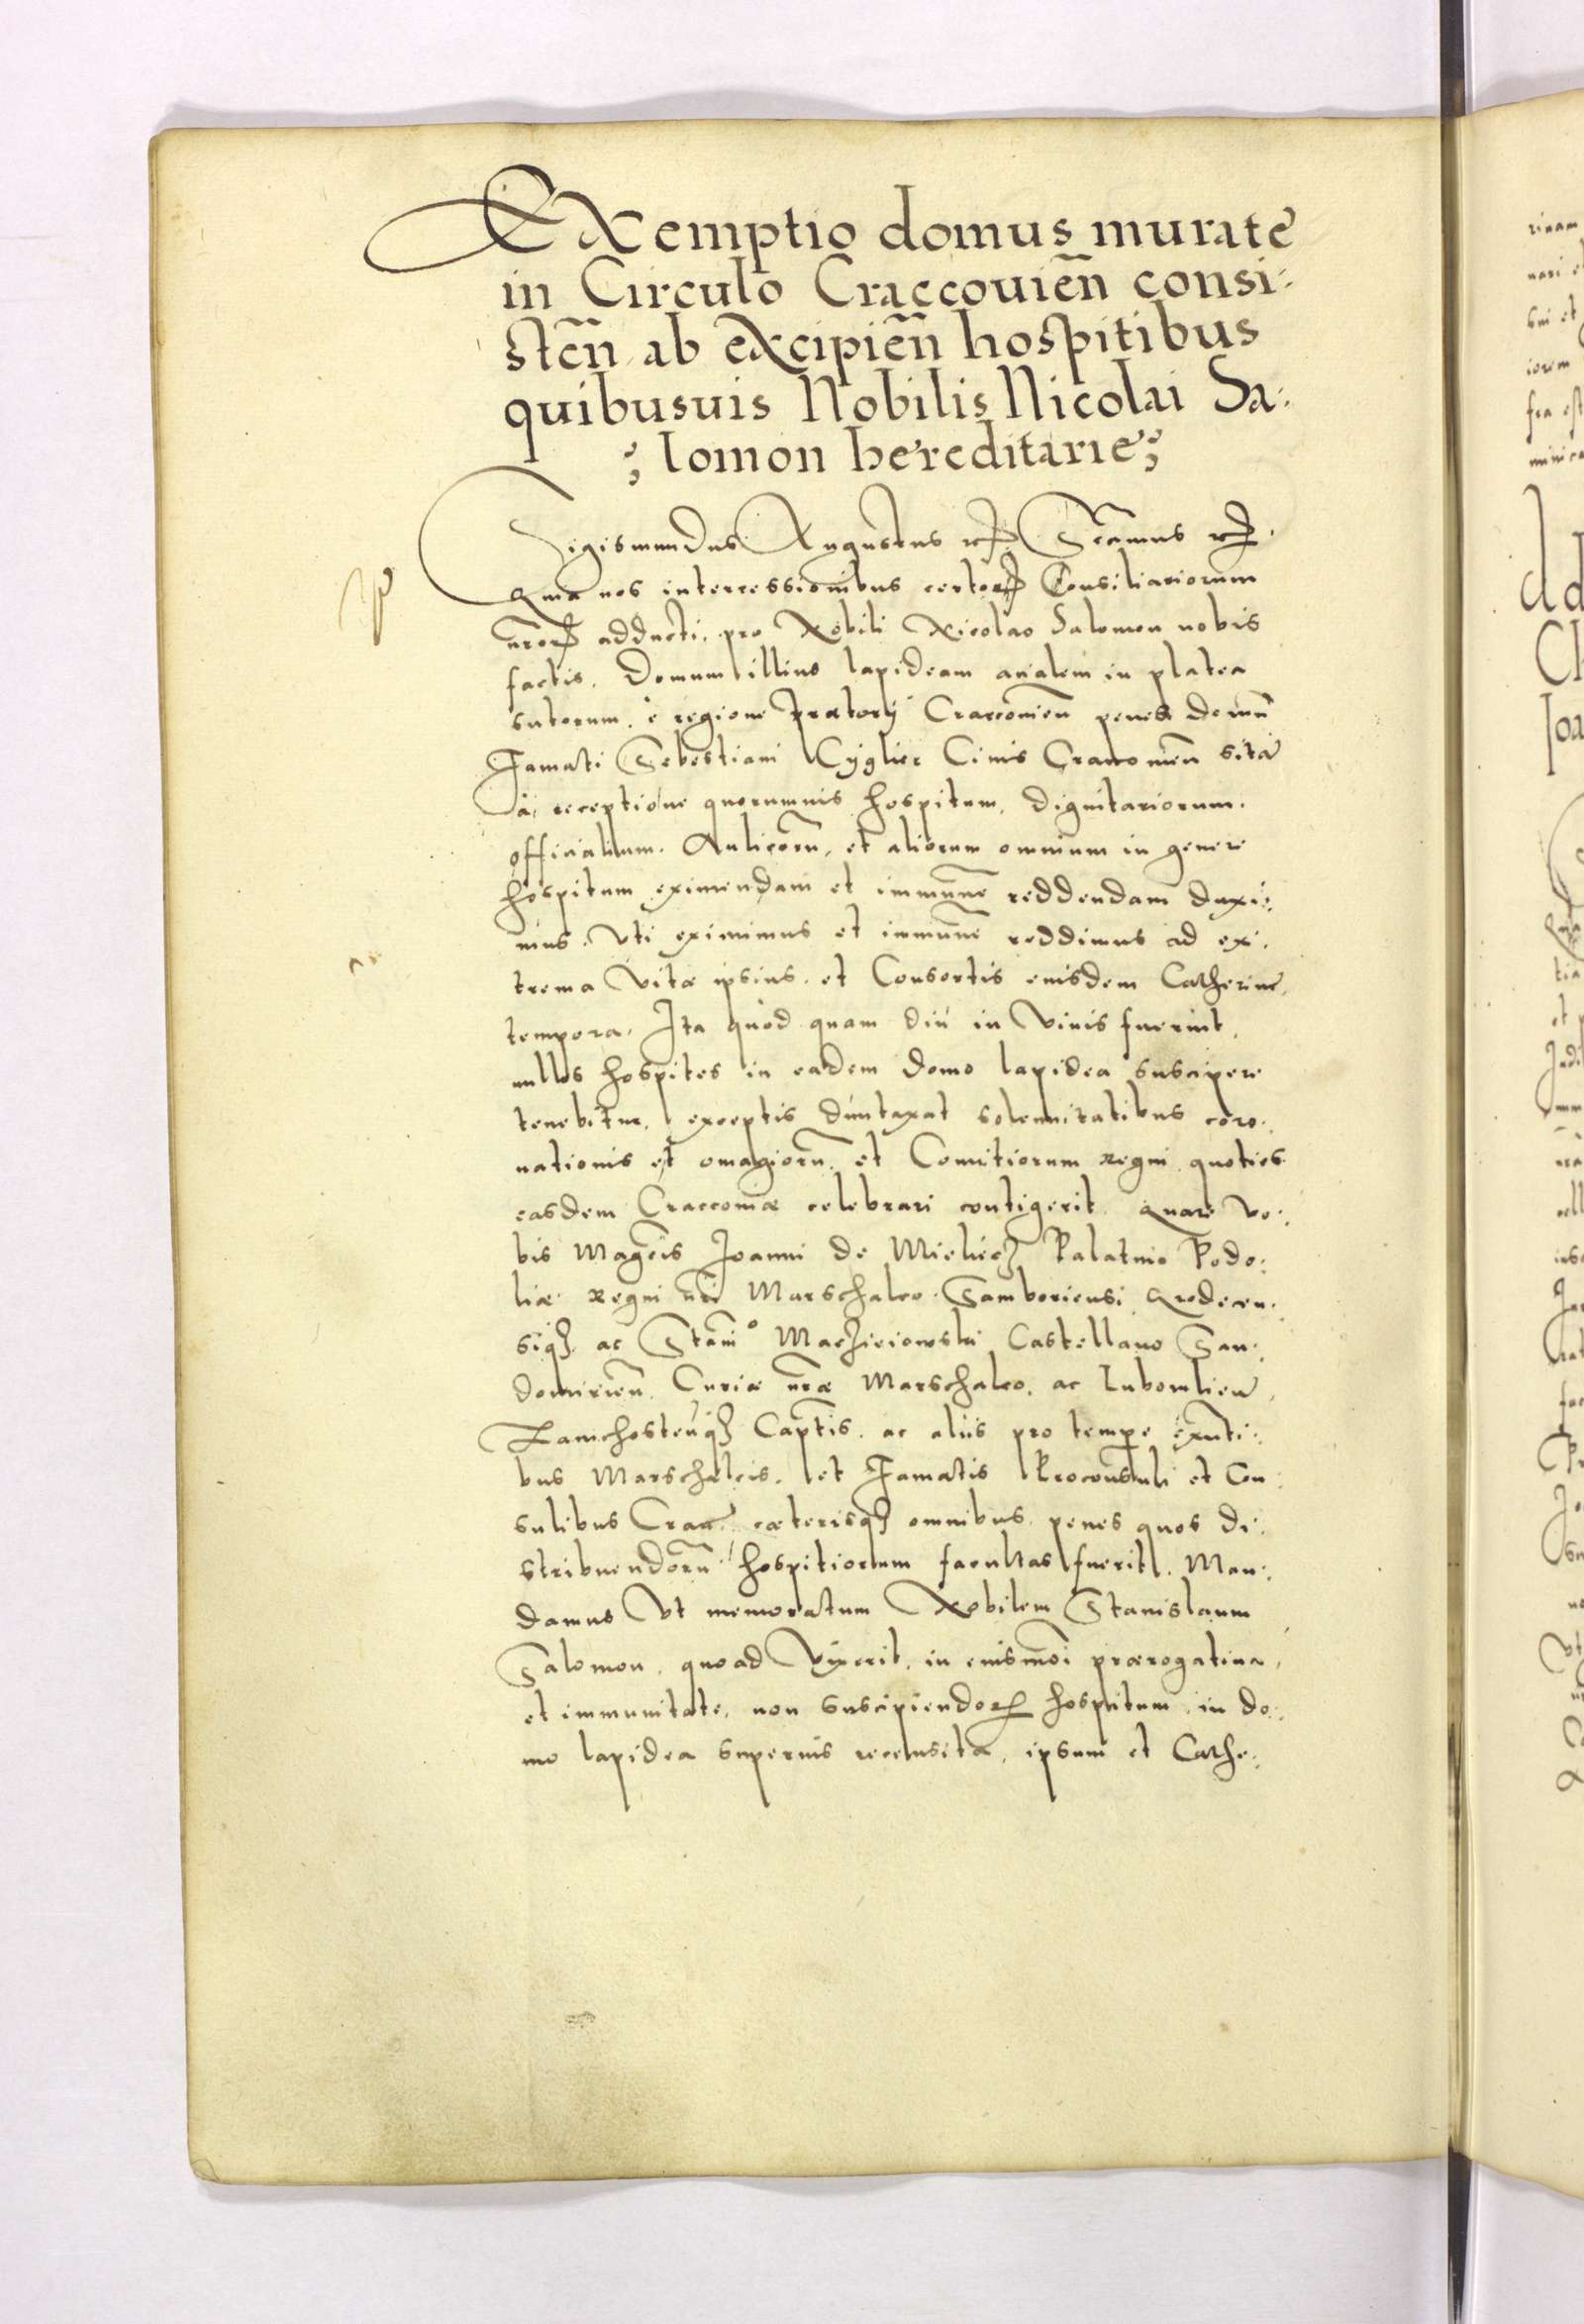 Exemptio domus murate
in Circulo Craccouień consi:
steñ ab excipień hospitibus
quibusuis Nobilis Nicolai Sa:
lomon hereditarie
Sigismundus Augustus etc. Seamus etc.
Quia nos intercessionibus certorꝝ Consiliariorum
nrorꝝ adducti, pro Nobili Nicolao Salomon nobis
factis. Domum illius lapideam in platea
sutorum, è regione Prætorij Craccouień penes domū
Famati Sebastiani Cyglier Ciuis Craccouień sitā
à, receptione quorumuis hospitum, dignitariorum.
officialium. Aulicorū, et aliorum omnium in genere
hospitum eximendam et immunē reddendam duxi:
mus. Vti eximimus et immunē reddimus ad ex:
trema vitæ ipsius, et Consortis eiusdem Catherine,
tempora, Ita quòd quam diù in viuis fuerint,
nullos hospites in eadem domo lapidea suscipere
tenebitur, exceptis duntaxat solennitatibus coro:
nationis et omagiorū, et Comitiorum regni quoties
easdem Craccouiæ celebrari contigerit. Quare vo:
bis Magcis Joanni de Mieliecz Palatino Podo:
liæ regni nri Marschalco Samboriensi Grodecen:
siqȝ ac Stanio Macziciowski Castellano San:
domirień, Curiæ nræ Marschalco, ac Lubomlień,
Lanchosteńqȝ Captis. ac aliis pro tempe exnti:
bus Marschalcis, et Famatis Proconsuli et Con:
sulibus Cracc cæterisqȝ omnibus, penes quos di:
stribuendorū hospitiorum facultas fuerit. Man:
damus vt memoratum Nobilem Stanislaum
Salomon, quoad vixerit, in eiusmoi prærogatiua,
et immunitate, non suscipiendorꝝ hospitum, in do:
mo lapidea superius recensita, ipsum et Cathe: